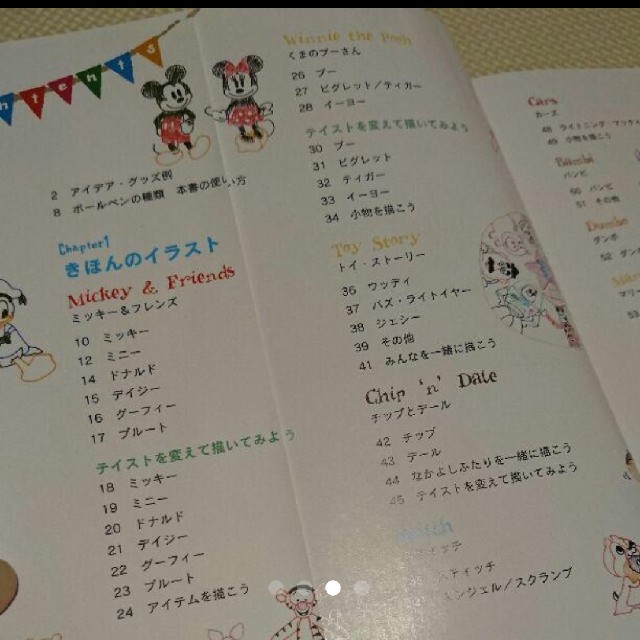 ntents
2 アイデア・グッズ例
8 ボールペンの種類 本書の使い方
[Chapter1]
きほんのイラスト
Mickey & Friends
ミッキー＆フレンズ
10 ミッキー
12 ミニー
14 ドナルド
15 デイジー
16 グーフィー
17 プルート
テイストを変えて描いてみよう
18 ミッキー
19 ミニー
20 ドナルド
21 デイジー
22 グーフィー
23 プルート
24 アイテムを描こう
Winnie the Pooh
くまのプーさん
26 プー
27 ピグレット／ティガー
28 イーヨー
テイストを変えて描いてみよう
30 プー
31 ピグレット
32 ティガー
33 イーヨー
34 小物を描こう
Toy Story
トイ・ストーリー
36 ウッディ
37 バズ・ライトイヤー
38 ジェシー
39 その他
41 みんなを一緒に描こう
Chip 'n' Dale
チップとデール
42 チップ
43 デール
44 なかよしふたりを一緒に描こう
45 テイストを変えて描いてみよう
ティッチ
ンジェル／スクランプ
Cars
カーズ
48 ライトニング・マックィ
49 小物を描こう
Bambi
バンビ
50 バンビ
51 その他
Dumbo
ダンボ
52 ダンボ
マリー
53